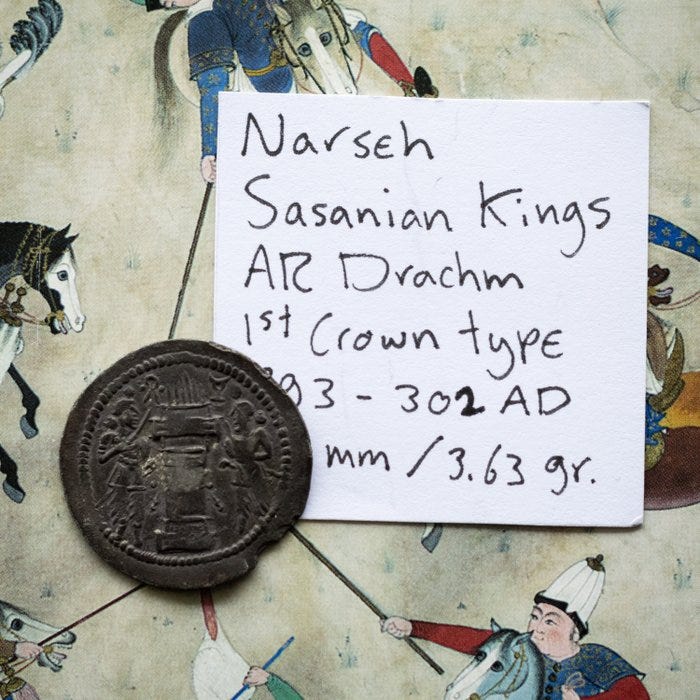 Narseh
Sasanian Kings
AR Drachm
1st Crown type
293 - 302 AD
mm / 3.63 gr.